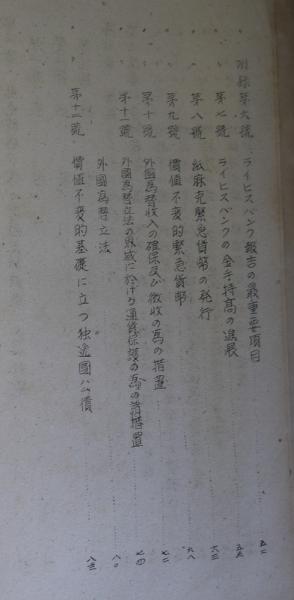 附録第六號 ライヒスバンク報告の最重要項目 五二
第七號 ライヒスバンクの金手持高の進展 五九
第八號 紙麻克緊急貨幣の発行 六三
第九號 價値不変的緊急貨幣 六八
第十號 外國為替収入の確保及び徴收の為の措置 七二
第十一號 外國為替立法の領域に於ける通貨保護の為の諸措置 七四
外國為替立法 八〇
第十二號 價値不変的基礎に立つ独逸國公債 八三